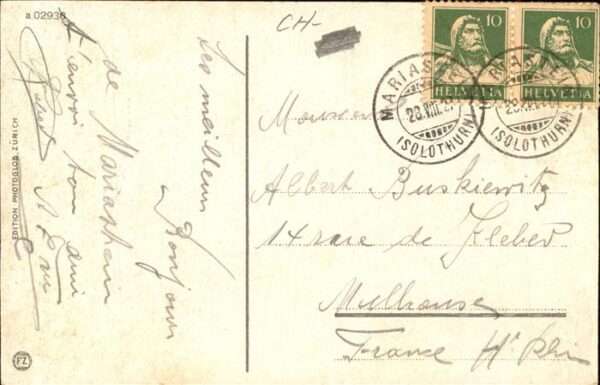 a 02936
CH-
10 10
HELVETIA HELVETIA
MARIASTEIN
28.VIII.2
(SOLOTHURN)
(SOLOTHURN)
Les meilleurs
Bonjour
de Mariastein
t'envoi ton ami
Monsieur
Albert Buskiewitz
14 rue de Kleber
Mulhouse
France Ht Rhin
EDITION PHOTOGLOB, ZÜRICH
FZ